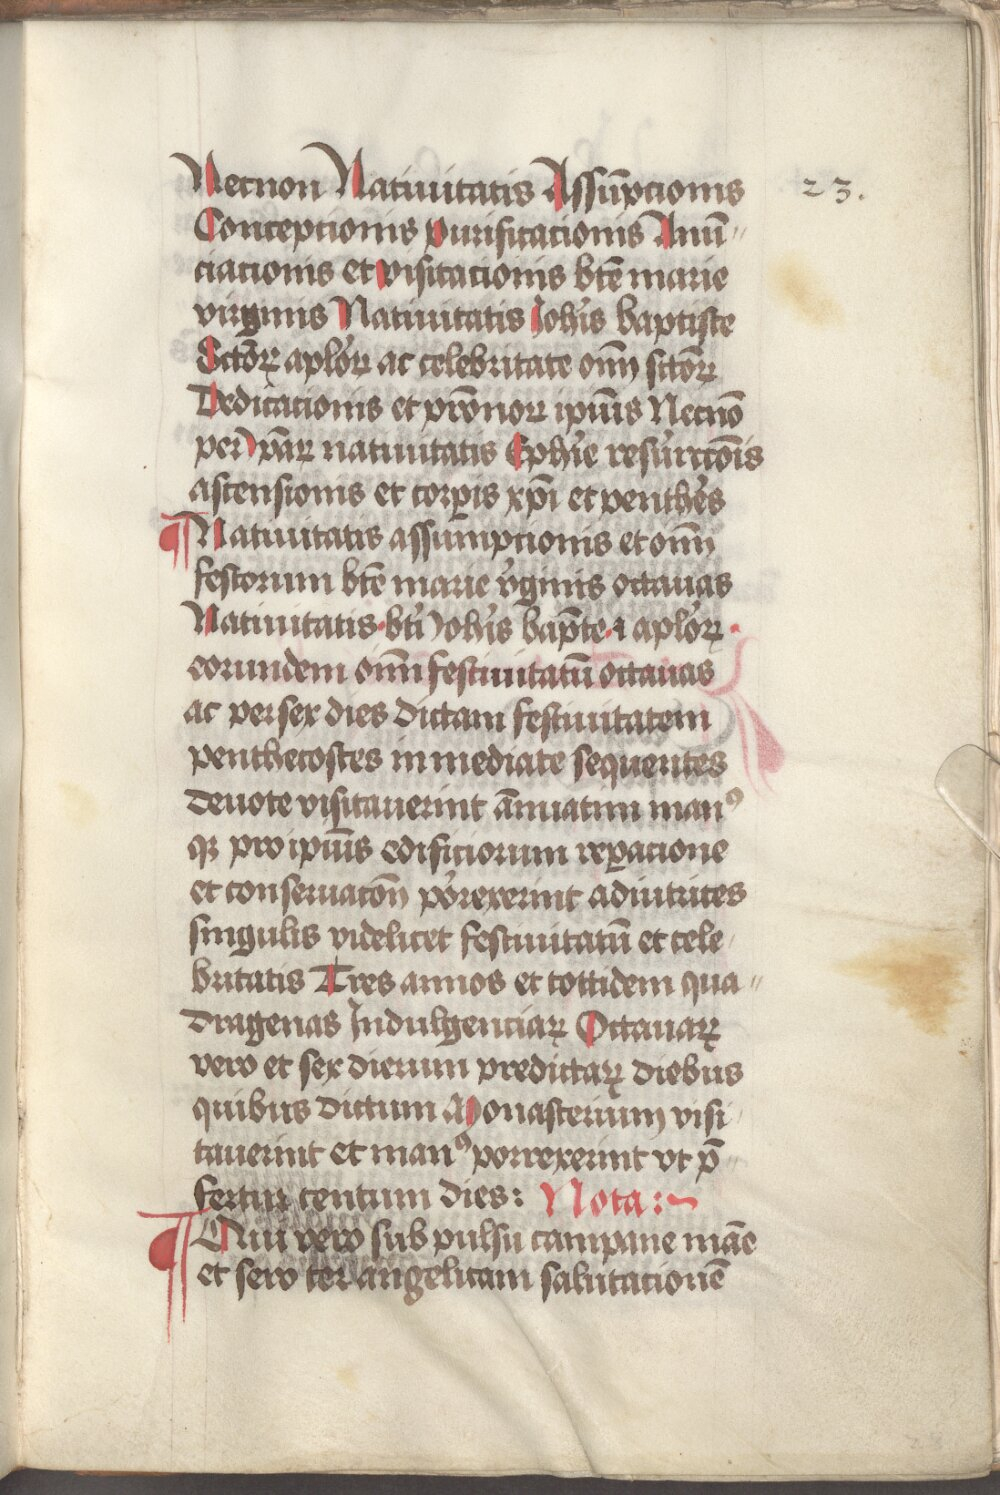 Necnon Natiuitatis Assūpcionis
23.
Conceptionis purificationis Anū-
ciacionis et visitacionis btē marie
virginis Natiuitatis Joh'is baptiste
Sctōꝝ aplōꝝ ac celebritate oīm sctōꝝ
Dedicacionis et prōnoꝝ ip̄ius Necnō
per pāꝝ natiuitatis Eph'ie resurrcōis
ascensionis et corꝑis xp̄i et penthe's
¶ Natiuitatis assumptionis et oīm
festorum btē marie v'ginis octauas
Natiuitatis bt'i Joh'is bapt̄e ⁊ aplōꝝ
eorundem oīm festiuitatū octauas
ac per sex dies dictam festiuitatem
penthecostes inmediate sequentes
deuote visitauerint ānuatim manꝰ
qꝫ pro ip̄ius edificiorum reꝑacione
et conseruacōn porrexerint adiutrices
singulis videlicet festiuitatū et cele-
britatis Tres annos et tottidem qua-
dragenas Indulgenciaꝝ Octauaꝝ
vero et sex dierum predictaꝝ diebus
quibus dictum Monasterium visi-
tauerint et manꝰ porrexerint vt p̄-
fertur centum dies: Nota:
¶ Qui vero sub pulsu campane māe
et sero ter angelicam salutacionē